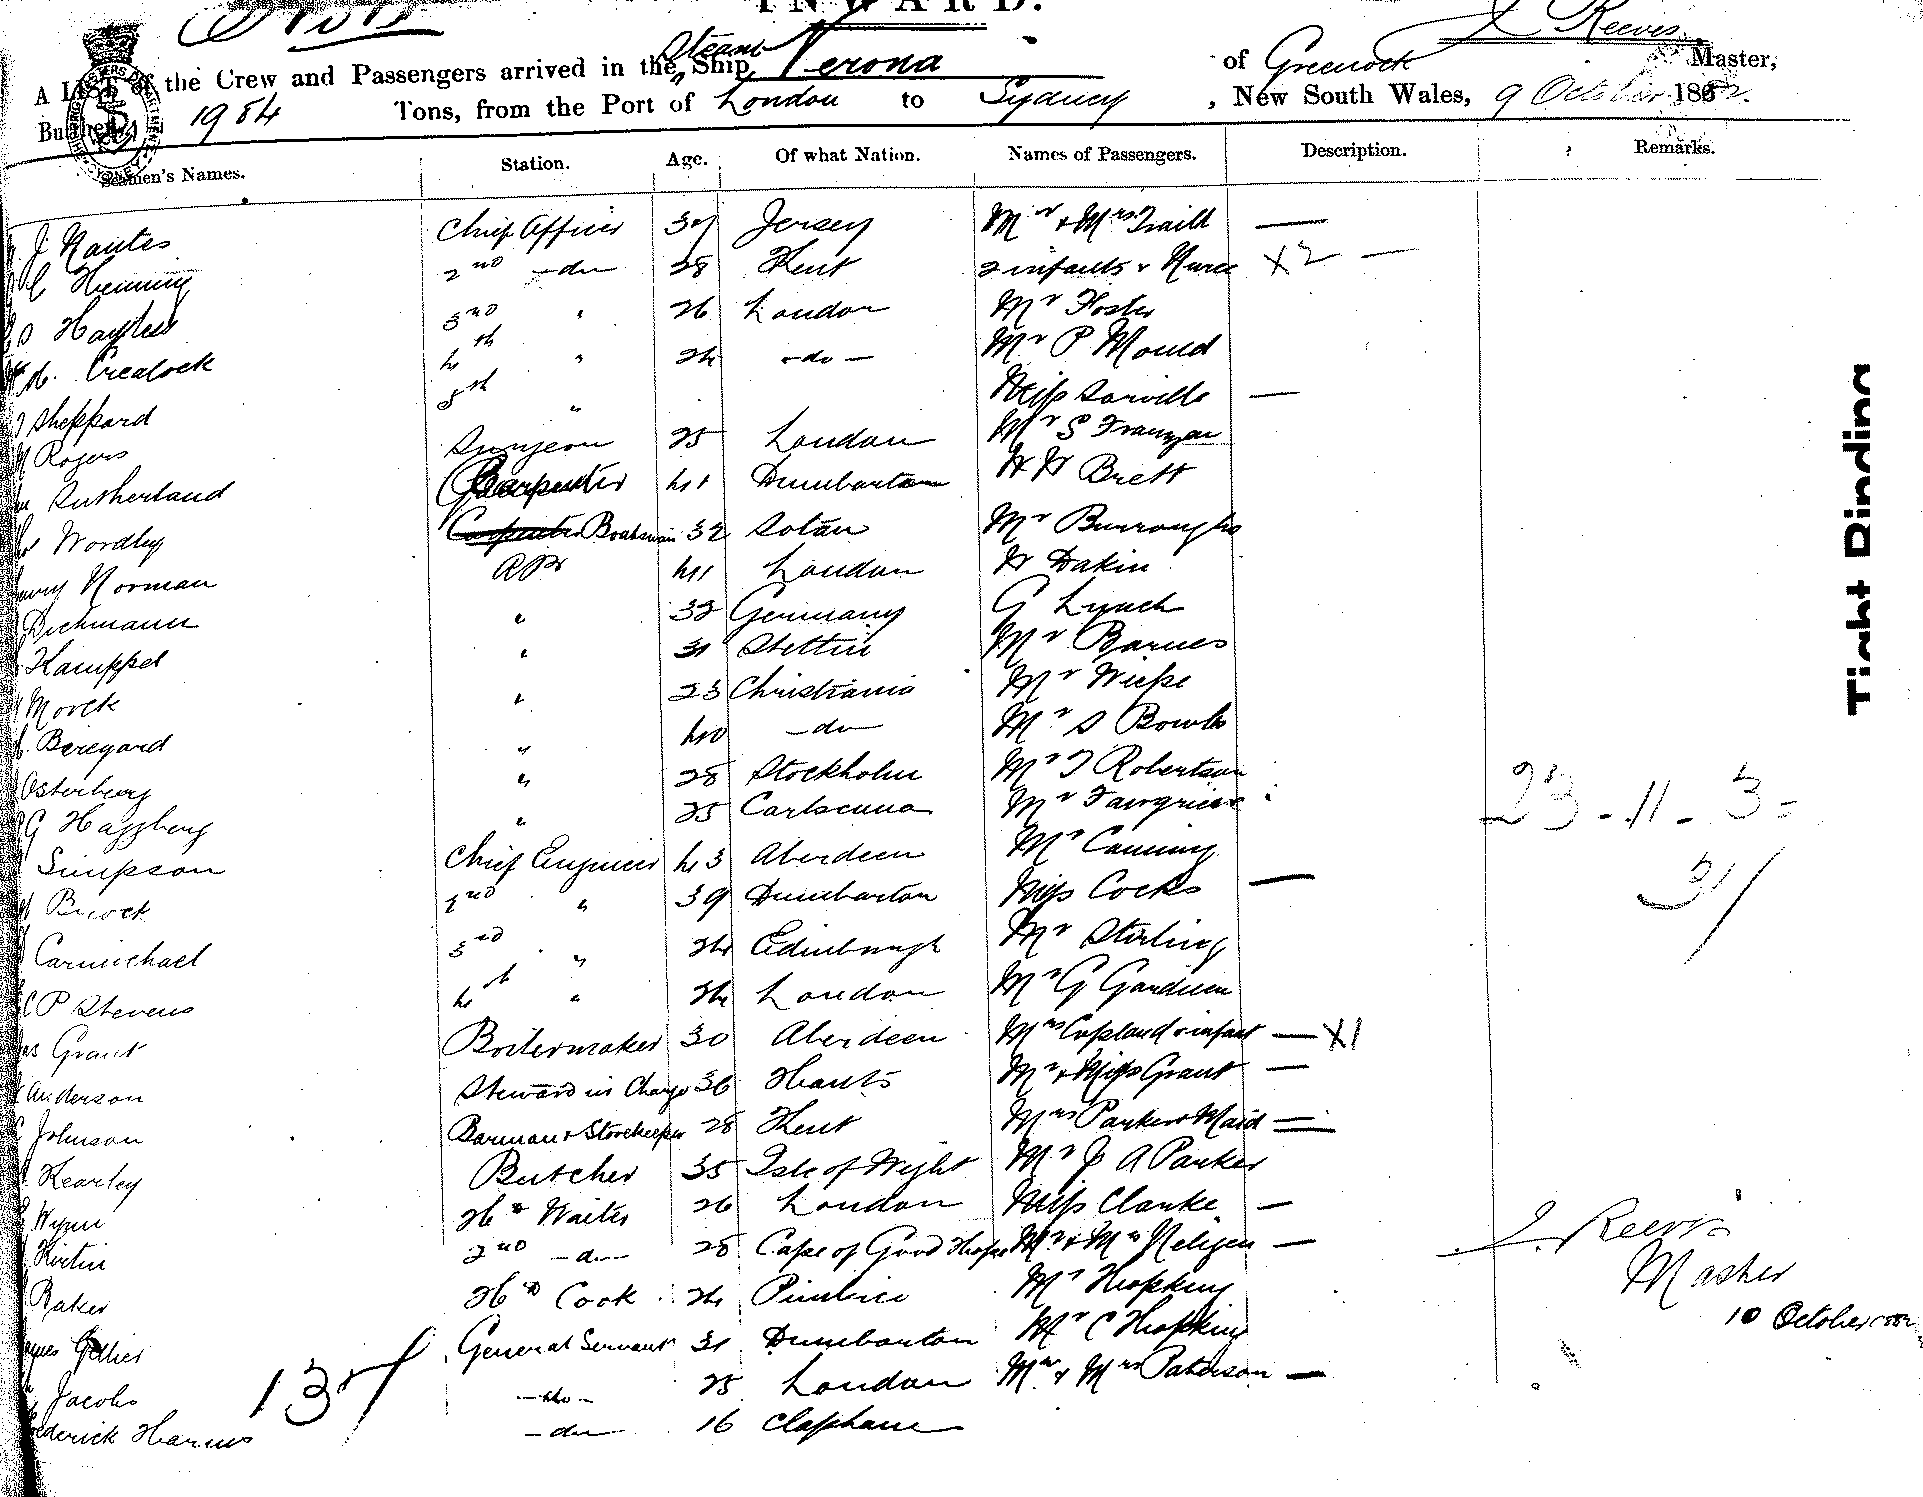 INWARD.
J Reeves
A List of the Crew and Passengers arrived in the Steam Ship Verona of Greenock Master,
Burthen 1984 Tons, from the Port of London to Sydney, New South Wales, 9 October 188
Seamen's Names. Station. Age. Of what Nation. Names of Passengers. Description. Remarks.
J. Nantes Chief Officer 37 Jersey Mr & Mrs Traill —
Henning 2nd —do 28 Kent 2 infants & Nurse X2 —
Hayles 3rd " 26 London Mr Foster
Crealock 4th " 24 —do— Mr P Mould
Sheppard 5th " Miss Sorville —
Rogers Surgeon 25 London Mr S Franzan
Sutherland Carpenter 41 Dumbarton H H Brett
Wordley Boatswain 32 Solan Mr Burroughs
Norman AB 41 London H Dakin
Dichmann " 32 Germany G Lynch
Kamppel " 31 Stettin Mr Barnes
Morck " 23 Christiania Mr Wiese
Beregard " 40 —do— Mr S Bowls
Osterberg " 28 Stockholm Mr J Robertson
G Hagberg " 25 Carlscrona Mr Fairgrieve
Simpson Chief Engineer 43 Aberdeen Mr Canning
23-11-3=
Brock 2nd " 39 Dumbarton Miss Cocks —
31/
Carmichael 3rd " 24 Edinburgh Mr Stirling
P Stevens 4th " 24 London Mr G Gardner
Grant Boilermaker 30 Aberdeen Mrs Copland & infant — X1
Anderson Steward in Charge 36 Hants Mr & Miss Grant —
Johnson Barman & Storekeeper 28 Kent Mrs Parker & Maid =
Kearley Butcher 35 Isle of Wight Mr J A Parker
Wynn Hd Waiter 26 London Miss Clarke —
Kirtin 2nd —do— 28 Cape of Good Hope Mr & Mrs Neligen —
J. Reeves
Baker Hd Cook 24 Pimlico Mr Hopkins
Master
Gellies General Servant 31 Dumbarton Mr C Hopkins
10 October
Jacobs —do— 25 London Mr & Mrs Paterson —
Frederick Harris —do— 16 Clapham
Tight Binding